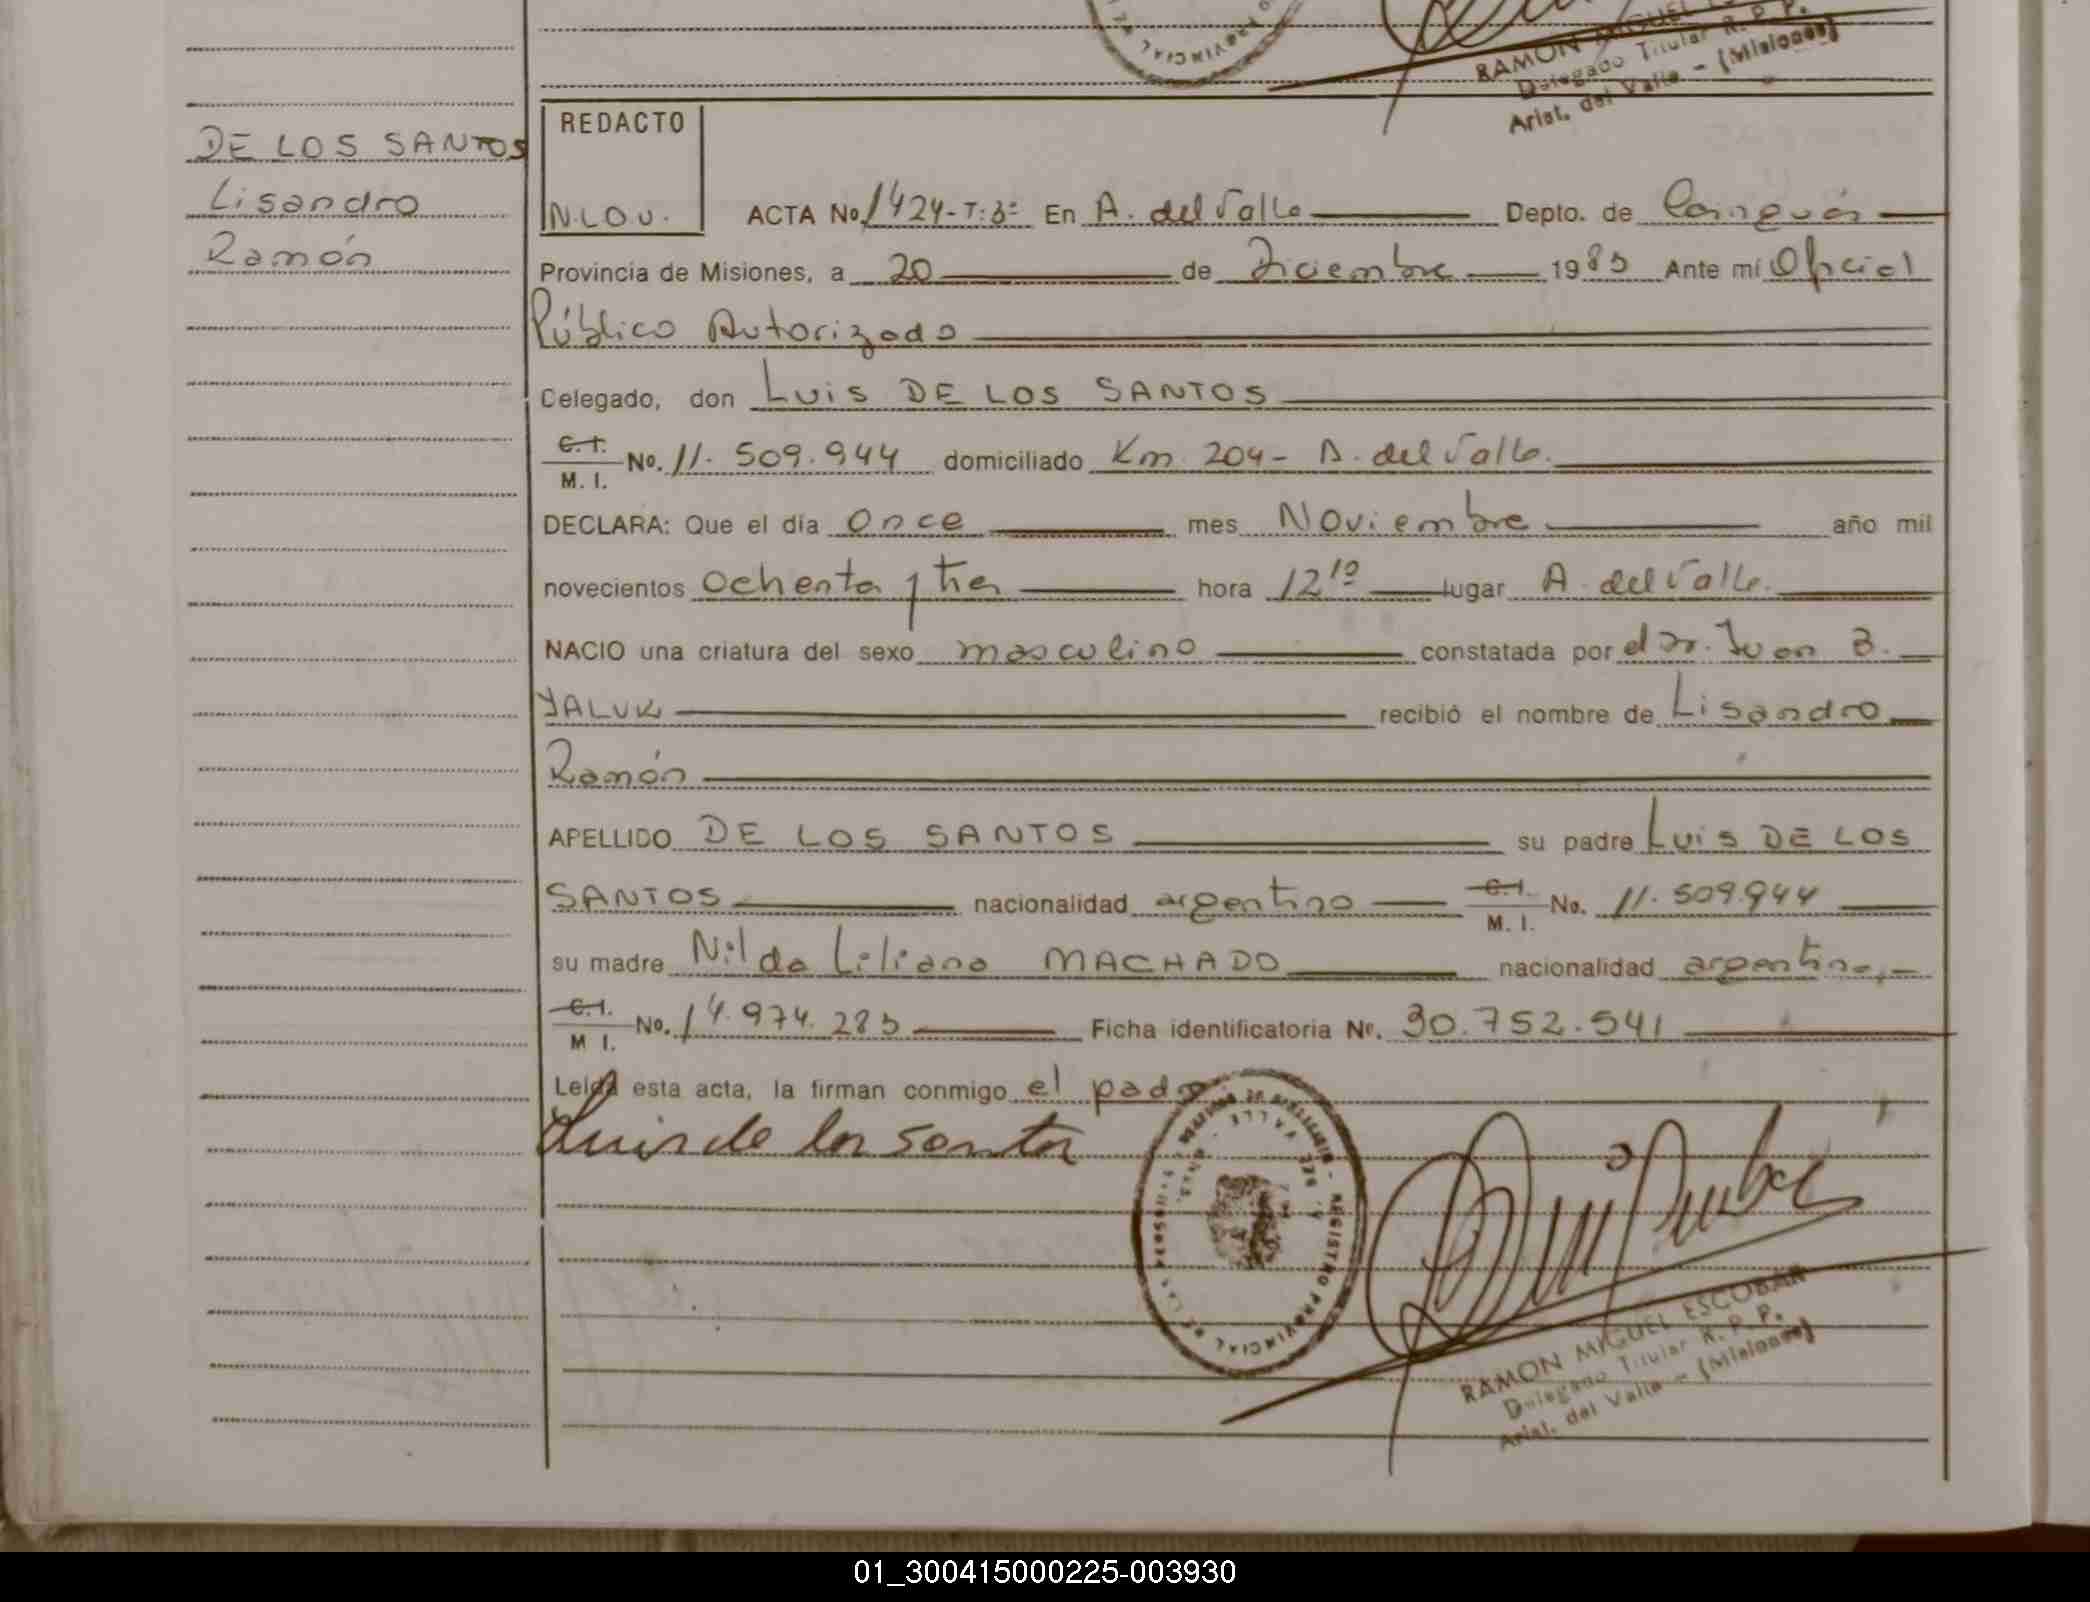 RAMON MIGUEL
Delegado Titular R. P. P.
Arist. del Valle - (Misiones)
PROVINCIAL
DE LOS SANTOS
Lisandro
Ramón
REDACTO
N.L.O.V.
ACTA No. 1424-T:3º En A. del Valle Depto. de Cainguás
Provincia de Misiones, a 20 de Diciembre 1983 Ante mí Oficial
Público Autorizado
Celegado, don Luis DE LOS SANTOS
C.I. M. I. No. 11.509.944 domiciliado Km 204- A. del Valle.
DECLARA: Que el día once mes Noviembre año mil
novecientos ochenta y tres hora 12¹⁰ lugar A. del Valle.
NACIO una criatura del sexo masculino constatada por el Dr. Juan B.
YALUK recibió el nombre de Lisandro
Ramón
APELLIDO DE LOS SANTOS su padre Luis DE LOS
SANTOS nacionalidad argentino C.I. M. I. No. 11.509.944
su madre Nilda Liliana MACHADO nacionalidad argentina,-
C.I. M I. No. 14.974.283 Ficha identificatoria Nº. 30.752.541
Leída esta acta, la firman conmigo el padre
Luis de los santos
REGISTRO PROVINCIAL DE LAS PERSONAS
DEL VALLE
RAMON MIGUEL ESCOBAR
Delegado Titular R. P. P.
Arist. del Valle - (Misiones)
01_300415000225-003930